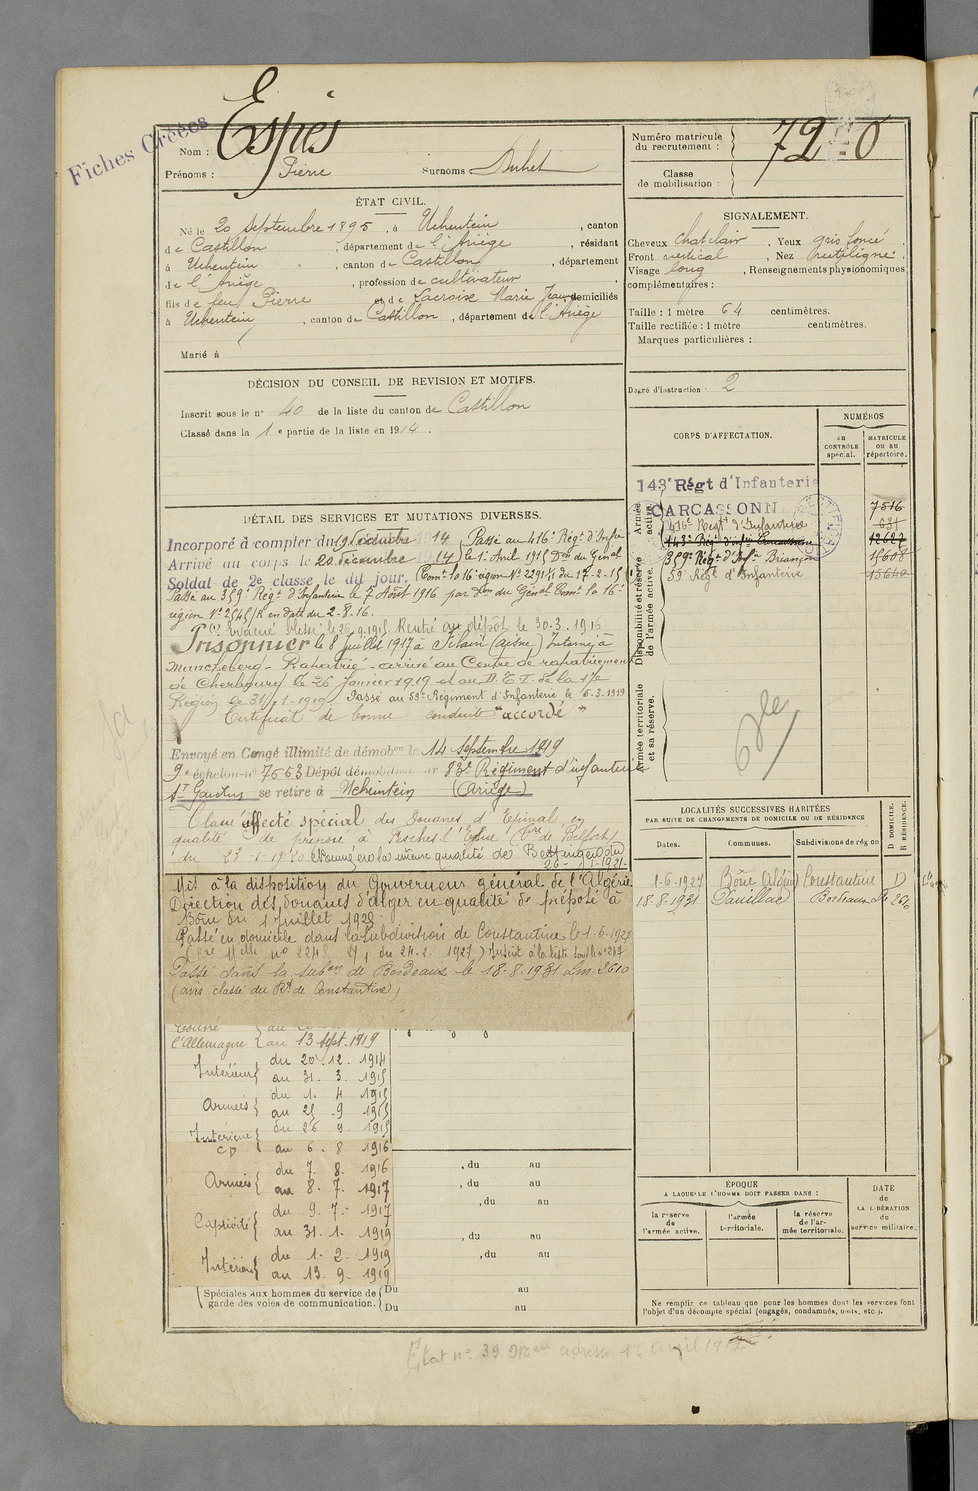 Fiches Créées
Nom : Espès
Prénoms : Pierre Surnoms
Numéro matricule du recrutement : 720
Classe de mobilisation :
ÉTAT CIVIL.
Né le 20 Septembre 1895, à Uchentein, canton
de Castillon, département de l'Ariège, résidant
à Uchentein, canton de Castillon, département
de l'Ariège, profession de cultivateur
fils de feu Pierre et de Lacroix Marie Jeanne domiciliés
à Uchentein, canton de Castillon, département de l'Ariège
Marié à
SIGNALEMENT.
Cheveux chat clair, Yeux gris foncé.
Front vertical, Nez rectiligne.
Visage long, Renseignements physionomiques
complémentaires :
Taille : 1 mètre 64 centimètres.
Taille rectifiée : 1 mètre centimètres.
Marques particulières :
Degré d'instruction : 2
DÉCISION DU CONSEIL DE REVISION ET MOTIFS.
Inscrit sous le n° 40 de la liste du canton de Castillon
Classé dans la 1e partie de la liste en 1914.
CORPS D'AFFECTATION.
NUMÉROS
au CONTRÔLE spécial.
MATRICULE ou au répertoire.
Armée active.
143e Régt d'Infanterie
CARCASSONN
7516
416e Regt d'Infanterie 631
143e Reg. d'inf. Carcassonne 12627
359e Régt d'Infie Briançon 15608
59e Régt d'Infanterie 15640
Disponibilité et réserve de l'armée active.
Armée territoriale et sa réserve.
DÉTAIL DES SERVICES ET MUTATIONS DIVERSES.
Incorporé à compter du 19 14 Passé au 416e Régt d'Infie
Arrivé au corps le 20 décembre 1914 le 1er Avril 1915 Don du Génal
Soldat de 2e classe le dit jour. Comt la 16e région N° 2291/1 du 17-2-15
Passé au 359e Régt d'Infanterie le 7 Août 1916 par Don du Génal Comt la 16e
région N° 2545/R en date du 2-8-16.
Evacué blessé le 26.9.1915. Rentré au dépôt le 30.3.1916
Prisonnier le 8 Juillet 1917 à Filain (Aisne) Interné à
Muncheberg - Rapatrié - arrivé au Centre de rapatriement
de Cherbourg le 26 Janvier 1919 et au D.T.I. de la 17e
Région le 31-1-1919 Passé au 59e Régiment d'Infanterie le 6-3-1919
Certificat de bonne conduite "accordé"
Envoyé en Congé illimité de démobon le 14 Septembre 1919
9e échelon n° 7553 Dépôt démobilisateur 83e Régiment d'infanterie
St Gaudens se retire à Uchentein (Ariège)
Classé affecté spécial des Douanes d'Epinal en
qualité de préposé à Roches l'Eglise (Tre de Belfort)
du 23-1-1920 Nommé en la même qualité de
26-1-1921-
Mis à la disposition du Gouverneur général de l'Algérie
Direction des douanes d'Alger en qualité de préposé à
Bône du 1 Juillet 1928
Passé en domicile dans la Subdivision de Constantine le 1-6-1927
Inscrit à la liste sous le n° 247
Passé dans la subon de Bordeaux le 18-8-1931 2610
(avis classé du Rt de Constantine)
LOCALITÉS SUCCESSIVES HABITÉES
PAR SUITE DE CHANGEMENTS DE DOMICILE OU DE RÉSIDENCE
D DOMICILE. R RÉSIDENCE.
Dates. Communes. Subdivisions de région
1-6-1927 Bône (Algérie) Constantine D
18-8-1931 Pauillac Bordeaux 2610
l'Allemagne au 13 sept. 1919
Intérieur du 20.12.1914
au 31.3.1915
Armées du 1.4 1915
au 25-9 1915
Intérieur du 26 9 1915
CD au 6.8 1916
Armées du 7.8.1916
au 8.7.1917
Captivité du 9.7.1917
au 31.1.1919
Intérieur du 1.2.1919
au 13.9.1919
, du au
, du au
, du au
, du au
, du au
Spéciales aux hommes du service de garde des voies de communication.
Du au
Du au
ÉPOQUE
A LAQUELLE L'HOMME DOIT PASSER DANS :
la réserve de l'armée active.
l'armée territoriale.
la réserve de l'armée territoriale.
DATE de LA LIBÉRATION du service militaire.
Ne remplir ce tableau que pour les hommes dont les services font
l'objet d'un décompte spécial (engagés, condamnés, omis, etc.).
Etat n° 39 adresse 16 avril